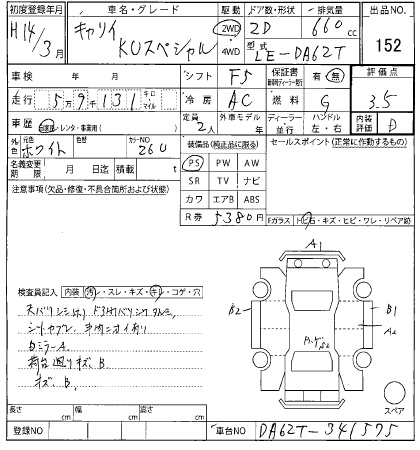 初度登録年月 車名・グレード 駆動 ドア数・形状 排気量 出品NO.
H14/3月 キャリイ KUスペシャル 2WD 4WD 2D 660cc 152
型式 LE-DA62T
車検 年 月 シフト F5 保証書 有・無 評価点
走行 5万9千131 キロ マイル 冷房 AC 燃料 G 3.5
車歴 自家用・レンタ・事業用( ) 定員 2人 外車モデル 年 ディーラー 並行 ハンドル 左・右 内装評価 D
外色 元色 ホワイト 色替 カラーNO 26U
装備品(純正品に限る) セールスポイント(正常に動作するもの)
名義変更期限 月 日迄 積載 t
PS PW AW
SR TV ナビ
カワ エアB ABS
R券 5380円
注意事項(欠品・修復・不具合箇所および状態)
Fガラス トビ石・キズ・ヒビ・ワレ・リペア跡
A1
B2
B1
A2
検査員記入 内装 汚レ・スレ・キズ・キレ・コゲ・穴
シートヤブレ
ロミラーA
荷台廻りキズ、B
キズ、B
スペア
長さ cm 幅 cm 高さ cm
登録NO 車台NO DA62T-341575